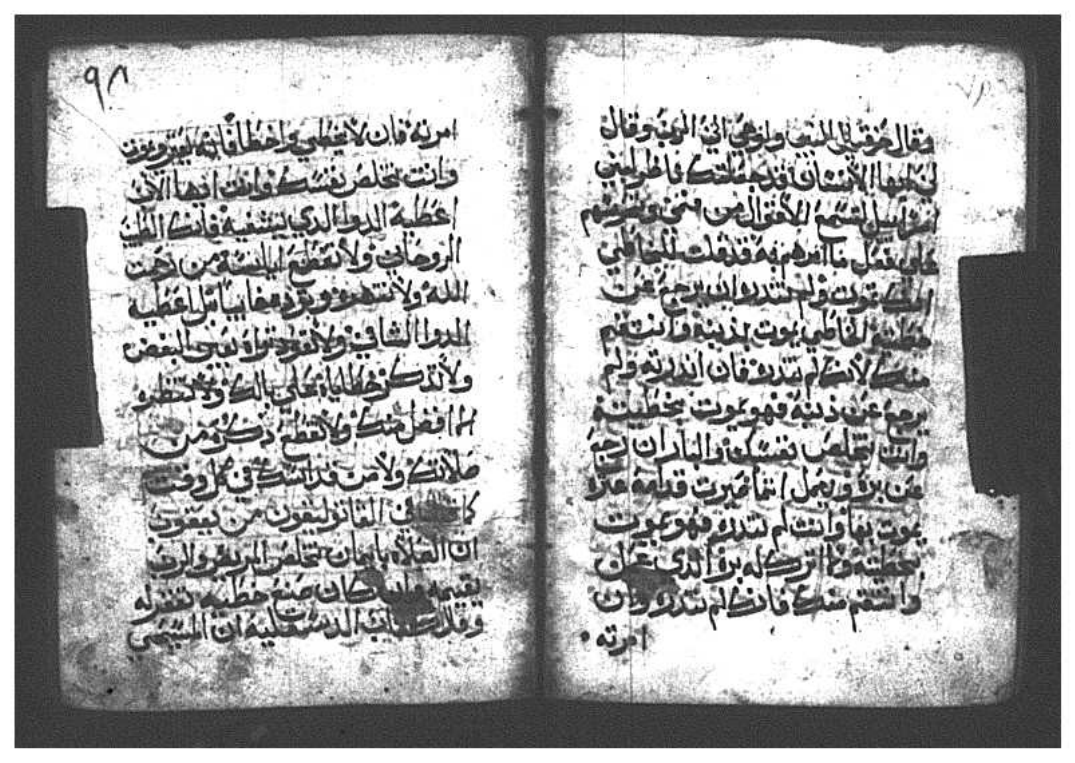 وقال حزقيال النبي واوحي الي الرب وقال
لي ايها الانسان قد جعلتك ناطورا لبني
اسراييل لتسمع الاقوال من فمي وتنذرهم
اذا قلت للخاطي
انك تموت ولم تنذره انه يرجع عن
خطيته الخاطي يموت بذنبه وانتقم
منك لانك لم تنذره فان انذرته ولم
يرجع عن ذنبه فهو يموت بخطيته
وانت تخلص نفسك والبار ان رجع
عن بره ويعمل اثما صيرت قدامه عثرة
يموت بها وانت لم تنذره فهو يموت
بخطيته ولا اترك له بره الذي عمل
وانتقم منك فانك لم تنذره وان
امرته
٩٨
امرته فان لا يخطي واخطا فانه يموت
وانت تخلص نفسك وانت ايها الاب
اعطيه الدوا الذي تشفيه فانك الطبيب
الروحاني ولا تقطع اياسه من رحمة
الله ولا تنتهره وتردعه خايبا بل اعطيه
الدوا الشافي ولا تعود تراه بعين البغض
ولا تذكر خطاياه علي بالك ولا تنتظره
انه افضل منك ولا تقطع ذكره من
صلاتك ولا من قداسك في كل وقت
كما في القاثوليقون من يعقوب
ان الصلاة بايمان تخلص المريض والرب
يقيمه وان كان صنع خطيه تغفر له
وفي الدسقليه ان المسيحي